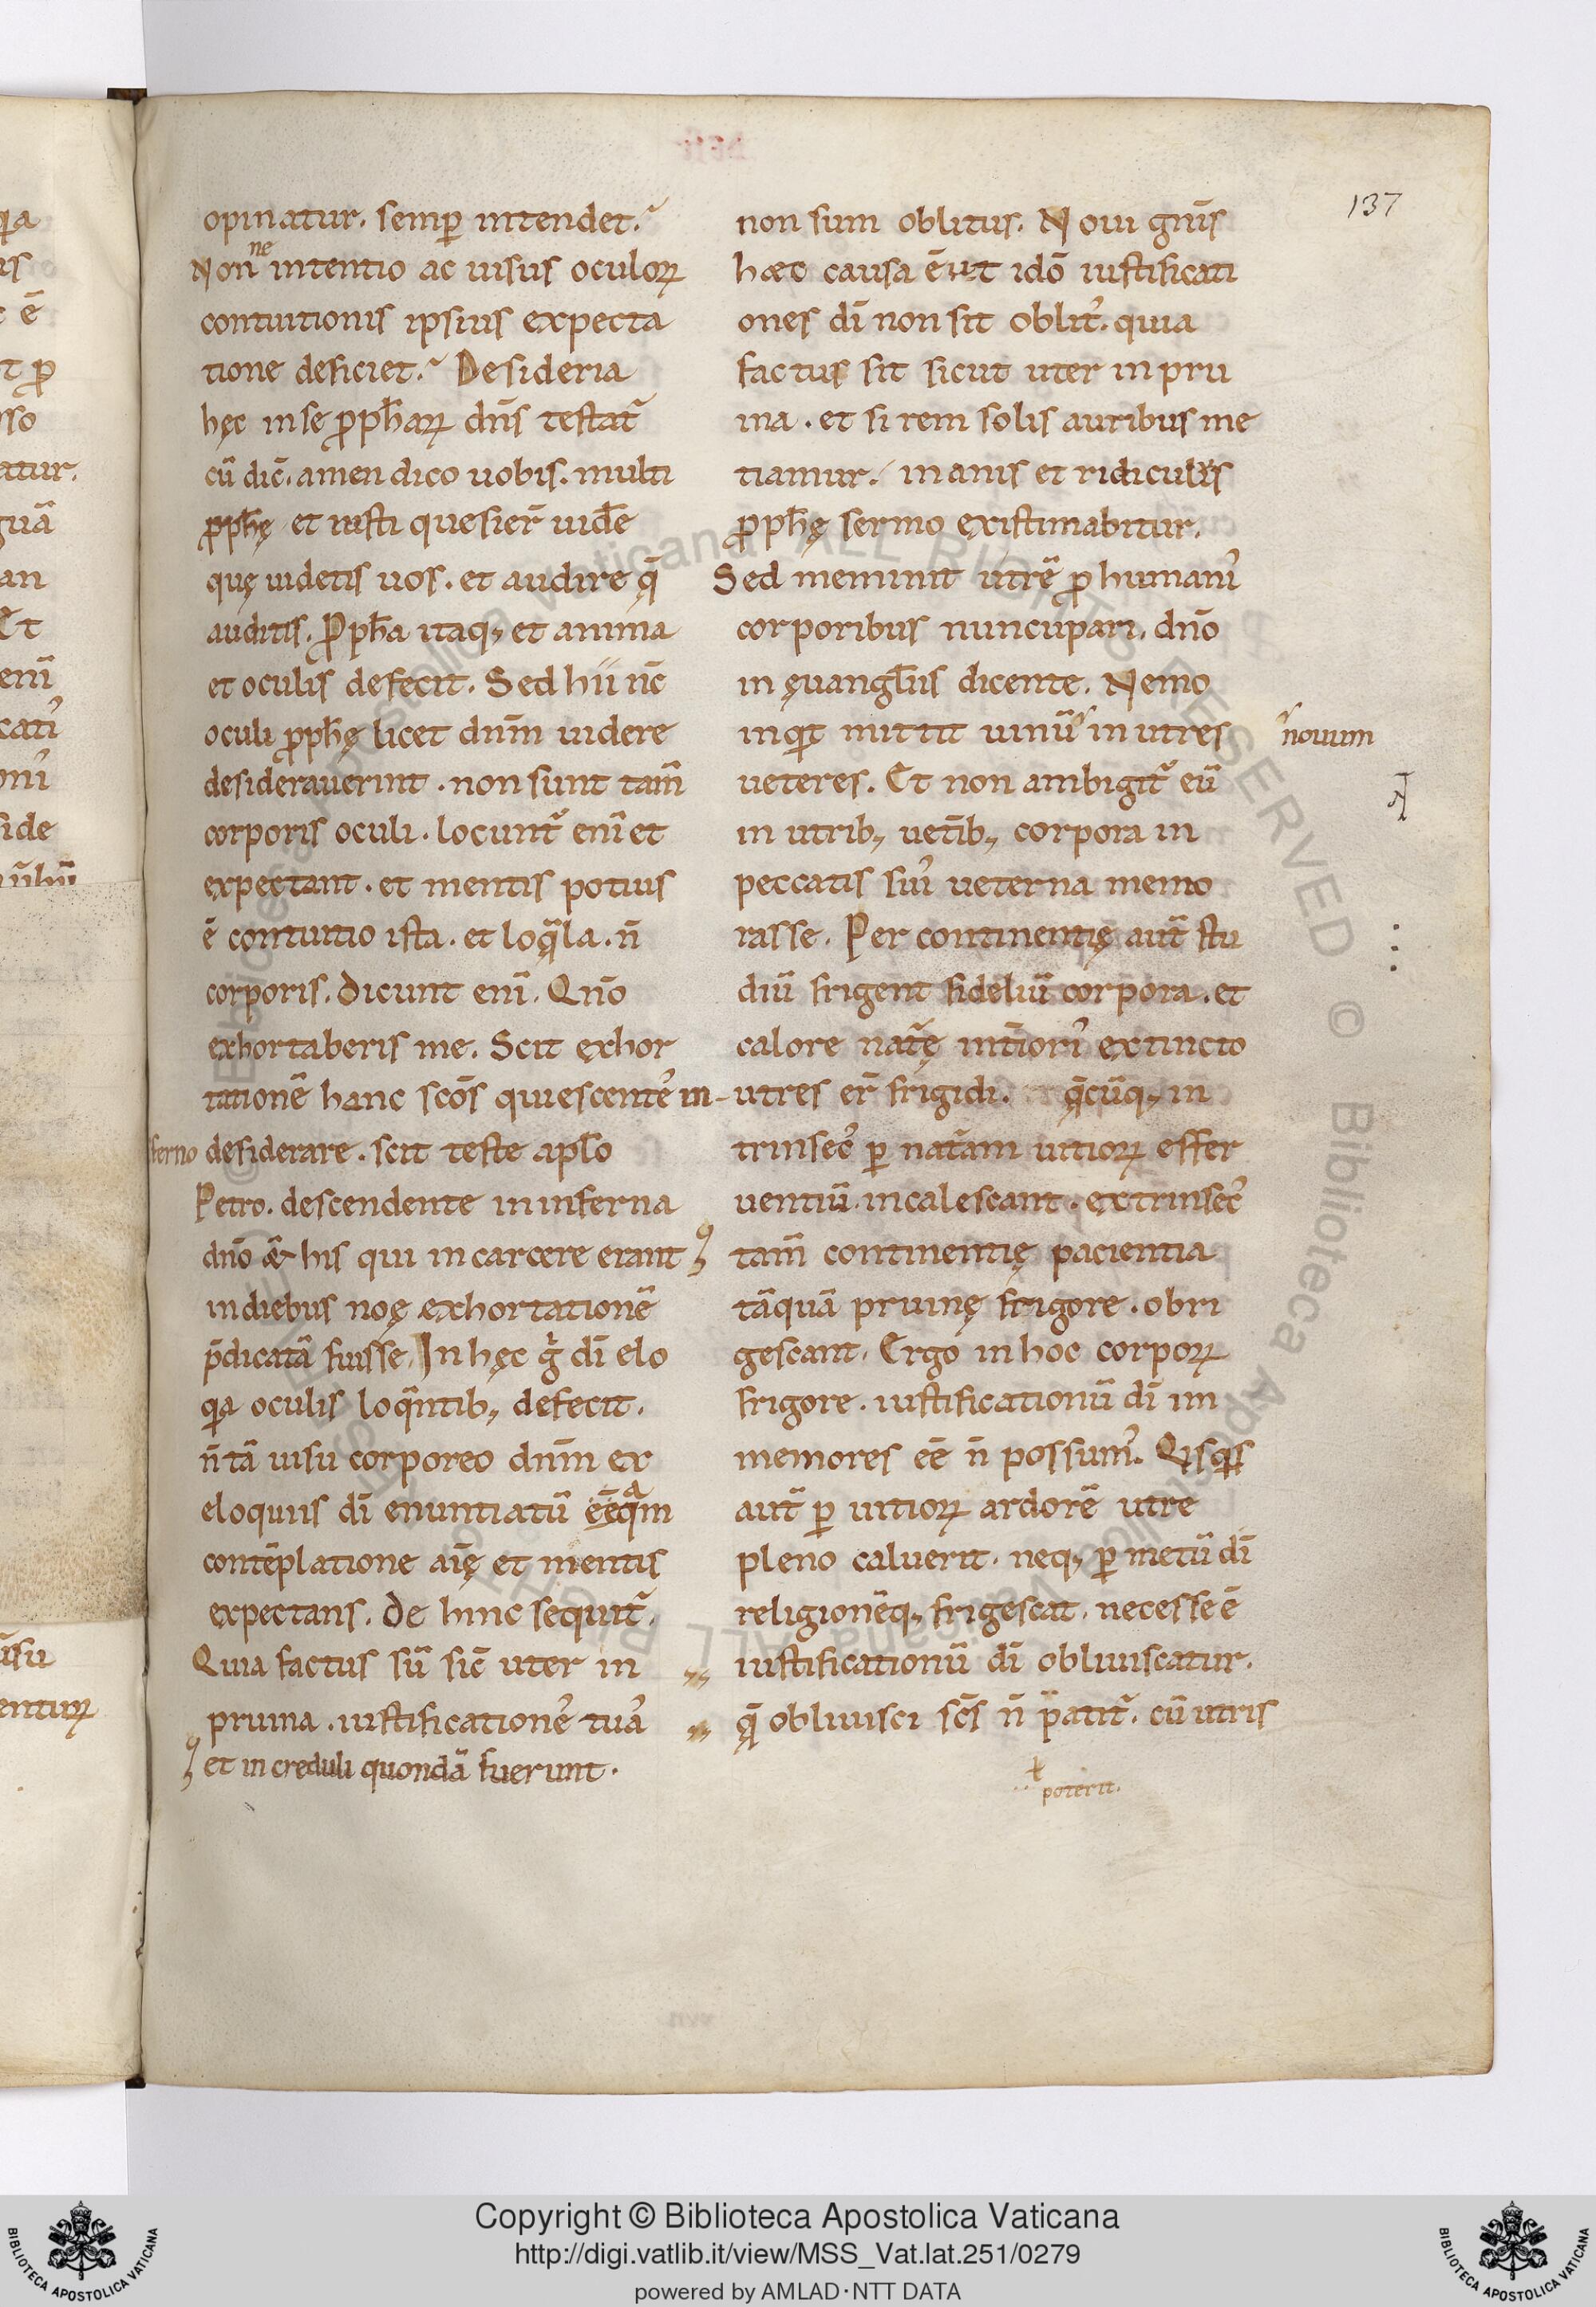 137
opinatur. semꝑ intendet.
Nonne intentio ac uisus oculoꝝ
contuitionis ipsius expecta
tione deficiet. Desideria
hęc in se ꝓph̄aꝝ dn̄s testat᷑
cū dic̄. amen dico uobis. multi
ꝓph̄ę et iusti quesier̄ uid̄e
quę uidetis uos. et audire q̄
auditis. Ꝓph̄a itaq; et anima
et oculis defecit. Sed hii nc̄
oculi ꝓph̄ę licet dnm̄ uidere
desiderauerint. non sunt tam̄
corporis oculi. locunt᷑ enī et
expectant. et mentis potius
ē contuitio ista. et loqᷓla. n̄
corporis. dicunt enī. Qn̄o
exhortaberis me. Scit exhor
tationē hanc scōs quiescente᾽ in-
ferno desiderare. scit teste apl̄o
Petro. descendente in inferna
dn̄o & his qui in carcere erant
in diebus noę exhortationē
p̄dicatā fuisse. In hęc g̊ dī elo
qᷓa oculis loqᷓntib; defecit.
n̄ tā uisu corporeo dnm̄ ex
eloquiis dī enuntiatū eē qᷓm
contēplatione aīę et mentis
expectans. De hinc sequit᷑.
Quia factus sū sic̄ uter in
pruina. iustificatione᾽ tua᾽
et increduli quondā fuerunt.
non sum oblitus. Noui gn̄is
hæc causa ē ut idō iustificati
ones dī non sit oblit᾽. quia
factus sit sicut uter in pru
ina. et si rem solis auribus me
tiamur. inanis et ridiculus
ꝓph̄ę sermo existimabitur.
Sed meminit utrē ꝓ humani᾽
corporibus nuncupari. dn̄o
in ęuangl̄iis dicente. Nemo
inqͥt mittit uinū in utres
novum
ueteres. Et non ambigit᷑ eū
in utrib; uet̄ib; corpora in
peccatis sui᾽ ueterna memo
rasse. Per continentię aut̄ stu
diū frigent fideliū corpora. et
calore nat᷑ę int̄iori᾽ extincto
utres er̄ frigidi. q̄cūq; in
trinsec᾽ ꝑ nat᷑am uitioꝝ effer
uentiū. incalescant. extrinsec᾽
tam̄ continentię pacientia
tāquā pruinę frigore. obri
gescant. Ergo in hoc corpoꝝ
frigore. iustificationū dī im
memores eē n̄ possum᾽. Qisqͥs
aut̄ ꝑ uitioꝝ ardorē utre
pleno caluerit. neq; ꝑ metū dī
religionēq; frigescat. necesse ē
iustificationū dī obliuiscatur.
q̨̄ obliuisci scs̄ n̄ patit᷑. cū utris
ł poterit.
Copyright © Biblioteca Apostolica Vaticana
http://digi.vatlib.it/view/MSS_Vat.lat.251/0279
powered by AMLAD·NTT DATA